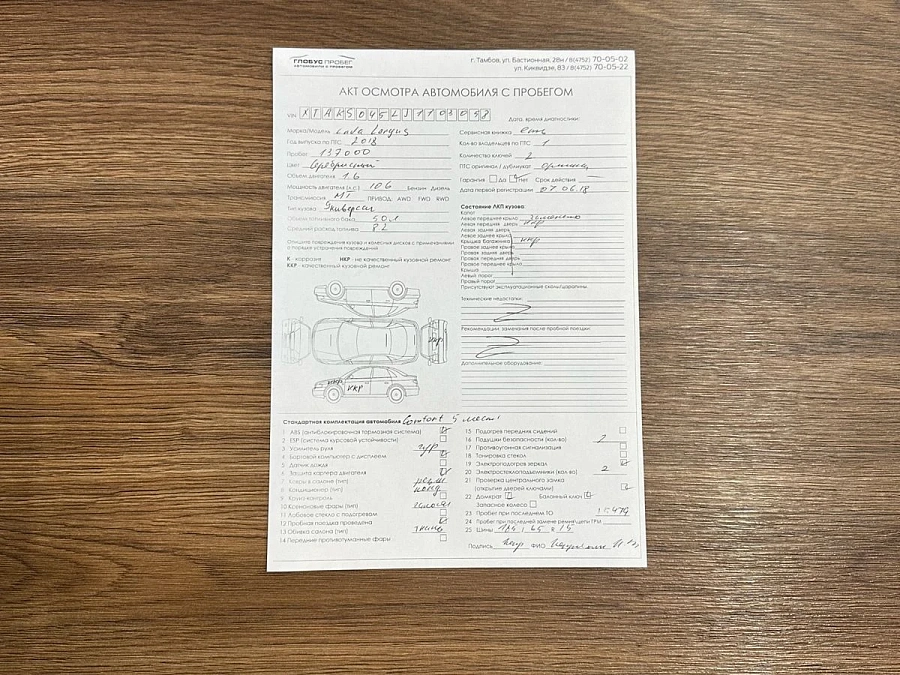 ГЛОБУС ПРОБЕГ
АВТОМОБИЛИ С ПРОБЕГОМ
г. Тамбов, ул. Бастионная, 28н / 8(4752) 70-05-02
ул. Киквидзе, 83 / 8(4752) 70-05-22
АКТ ОСМОТРА АВТОМОБИЛЯ С ПРОБЕГОМ
VIN
Дата, время диагностики:
Марка/Модель Lada Largus
Год выпуска по ПТС 2018
Пробег 137000
Цвет Серебристый
Объем двигателя 1.6
Мощность двигателя (л.с.) 106 Бензин Дизель
Трансмиссия МТ ПРИВОД: AWD FWD RWD
Тип кузова Универсал
Объем топливного бака 50 л
Средний расход топлива 8.2
Опишите повреждения кузова и колесных дисков с примечаниями
о порядке устранения повреждений
К - коррозия НКР - не качественный кузовной ремонт
ККР - качественный кузовной ремонт
Сервисная книжка есть
Кол-во владельцев по ПТС 1
Количество ключей 2
ПТС оригинал / дубликат оригинал
Гарантия Да Нет Срок действия —
Дата первой регистрации 07.06.18
Состояние ЛКП кузова:
Капот
Левое переднее крыло заменено
Левая передняя дверь нкр
Левая задняя дверь
Левое заднее крыло
Крышка багажника нкр
Правое заднее крыло
Правая задняя дверь
Правая передняя дверь
Правое переднее крыло
Крыша
Левый порог
Правый порог
Присутствуют эксплуатационные сколы/царапины.
Технические недостатки:
Рекомендации, замечания после пробной поездки:
Дополнительное оборудование:
нкр
нкр
нкр
Стандартная комплектация автомобиля Comfort 5 мест
1 ABS (антиблокировочная тормозная система)
2 ESP (система курсовой устойчивости)
3 Усилитель руля гур
4 Бортовой компьютер с дисплеем
5 Датчик дождя
6 Защита картера двигателя
7 Ковры в салоне (тип)
8 Кондиционер (тип) конд
9 Круиз контроль
10 Ксеноновые фары (тип) галоген
11 Лобовое стекло с подогревом
12 Пробная поездка проведена
13 Обивка салона (тип) ткань
14 Передние противотуманные фары
15 Подогрев передних сидений
16 Подушки безопасности (кол-во) 2
17 Противоугонная сигнализация
18 Тонировка стекол
19 Электропривод зеркал
20 Электростеклоподъемники (кол-во) 2
21 Проверка центрального замка
(открытие дверей ключами)
22 Домкрат Балонный ключ
Запасное колесо
23 Пробег при последнем ТО
24 Пробег при последней замене ремня/цепи ГРМ
25 Шины 185/65 R15
Подпись ФИО